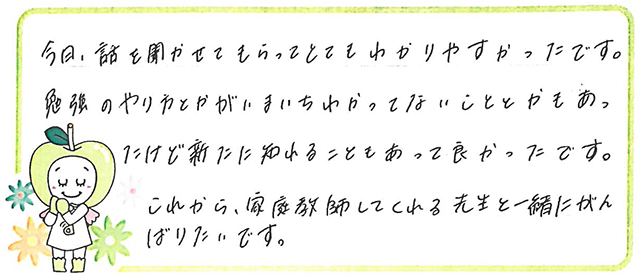 今日、話を聞かせてもらってとてもわかりやすかったです。
勉強のやり方とかがいまいちわかってないこととかもあっ
たけど新たに知れることもあって良かったです。
これから、家庭教師してくれる先生と一緒にがん
ばりたいです。